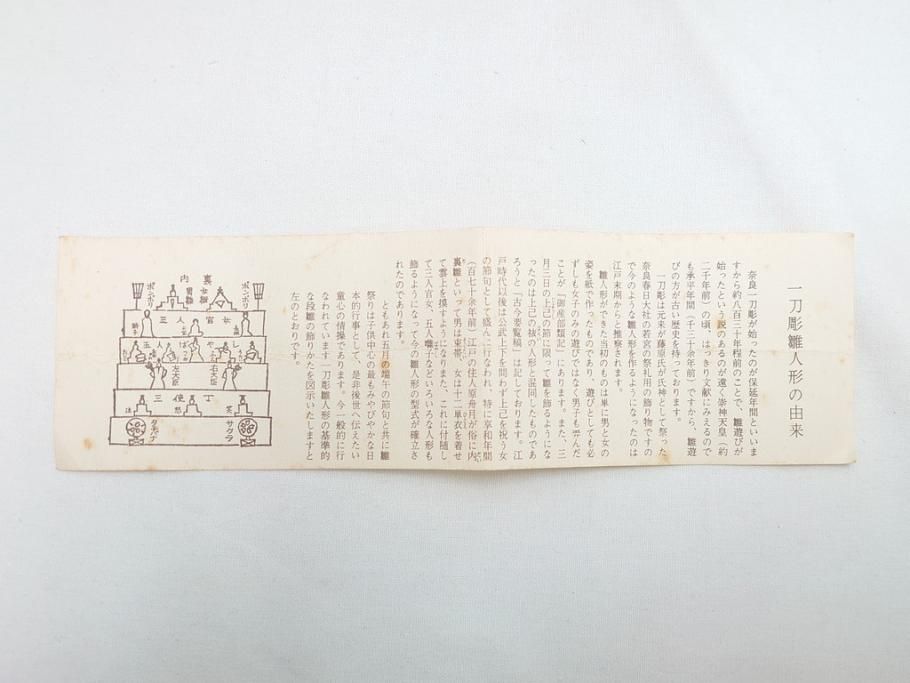 一刀彫雛人形の由来
奈良一刀彫が始ったのが保延年間といいま
すから約八百三十年程前のことで、雛遊びが
始ったという説のあるのが遠く崇神天皇(約
二千年前)の頃、はっきり文献にみえるので
も承平年間(千三十余年前)ですから、雛遊
びの方が古い歴史を持っております。
一刀彫は元来が藤原氏が氏神として祭った
奈良春日大社の若宮の祭礼用の飾り物ですの
で今のような雛人形を作るようになったのは
江戸末期からと推察されます。
雛人形ができた当初のものは単に男と女の
姿を紙で作ったものであり、遊びとしても必
ずしも女子のみの遊びではなく男子も嗜んだ
ことが「御産部類記」にあります。また、三
月三日の上巳の節に限って雛を飾るようにな
ったのは上巳の祓の人形と混同したものであ
ろうと「古今要覧稿」は記しております。江
戸時代以後は公武上下を問わず上巳を祝う女
の節句として盛んに行なわれ、特に享和年間
(百七十余年前)江戸の住人原舟月が俗に内
裏雛といって男は束帯、女は十二単衣を着せ
て雲上を摸すようになりまた、これに付随し
て三人官女、五人囃子などいろいろな人形も
飾るようになって今の雛人形の型式が確立さ
れたのであります。
ともあれ五月の端午の節句と共に雛
祭りは子供中心の最もみやびやかな日
本的行事として、是非後世へ伝えたい
童心の情操であります。今一般的に行
なわれています一刀彫雛人形の基準的
な段雛の飾りかたを図示いたしますと
左のとおりです。
内裏
ボンボリ
男雛
女雛
ボンボリ
三人官女
五人ばやし
左大臣
右大臣
三使丁
泣
怒
笑
タチバナ
サクラ